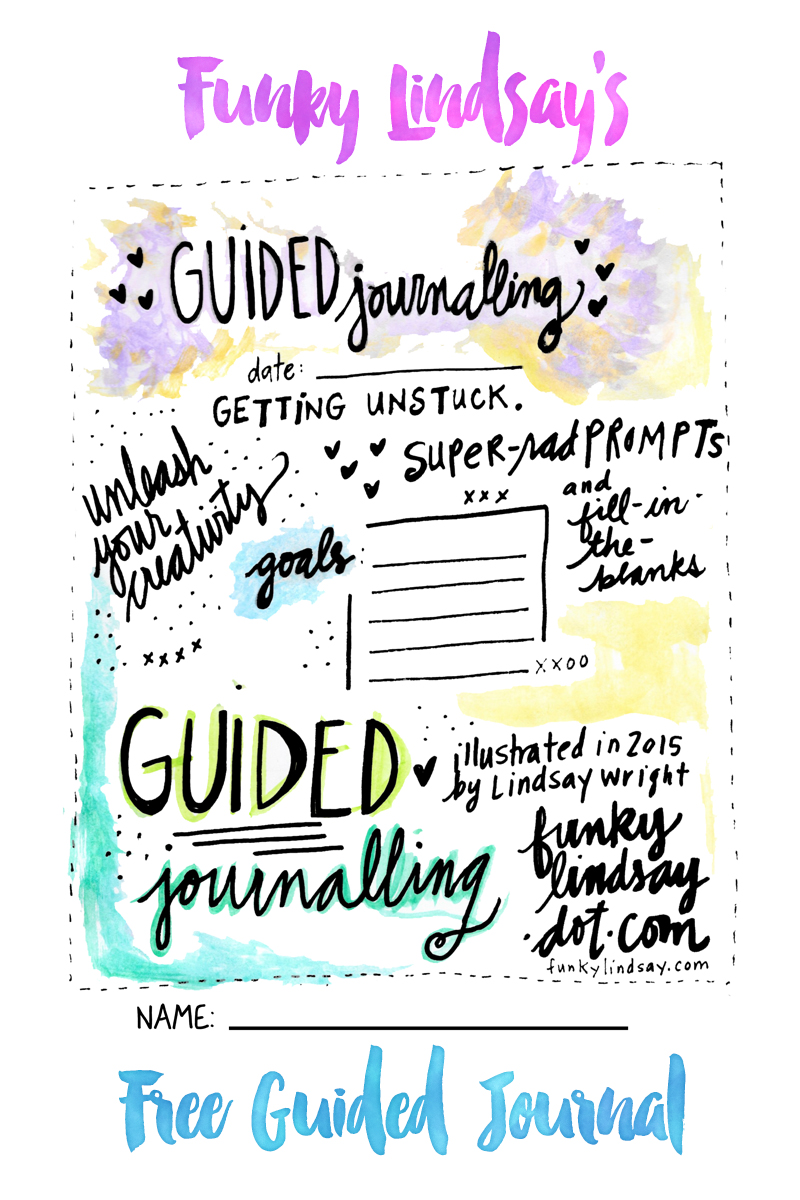 Funky Lindsay's
GUIDED journalling
date:
GETTING UNSTUCK.
unleash
your
creativity
SUPER-rad PROMPTS
xxx
and
fill-in-
the-
blanks
goals:
xxxx
xxoo
GUIDED
journalling
illustrated in 2015
by Lindsay Wright
funky
lindsay
.dot.com
funkylindsay.com
NAME:
Free Guided Journal